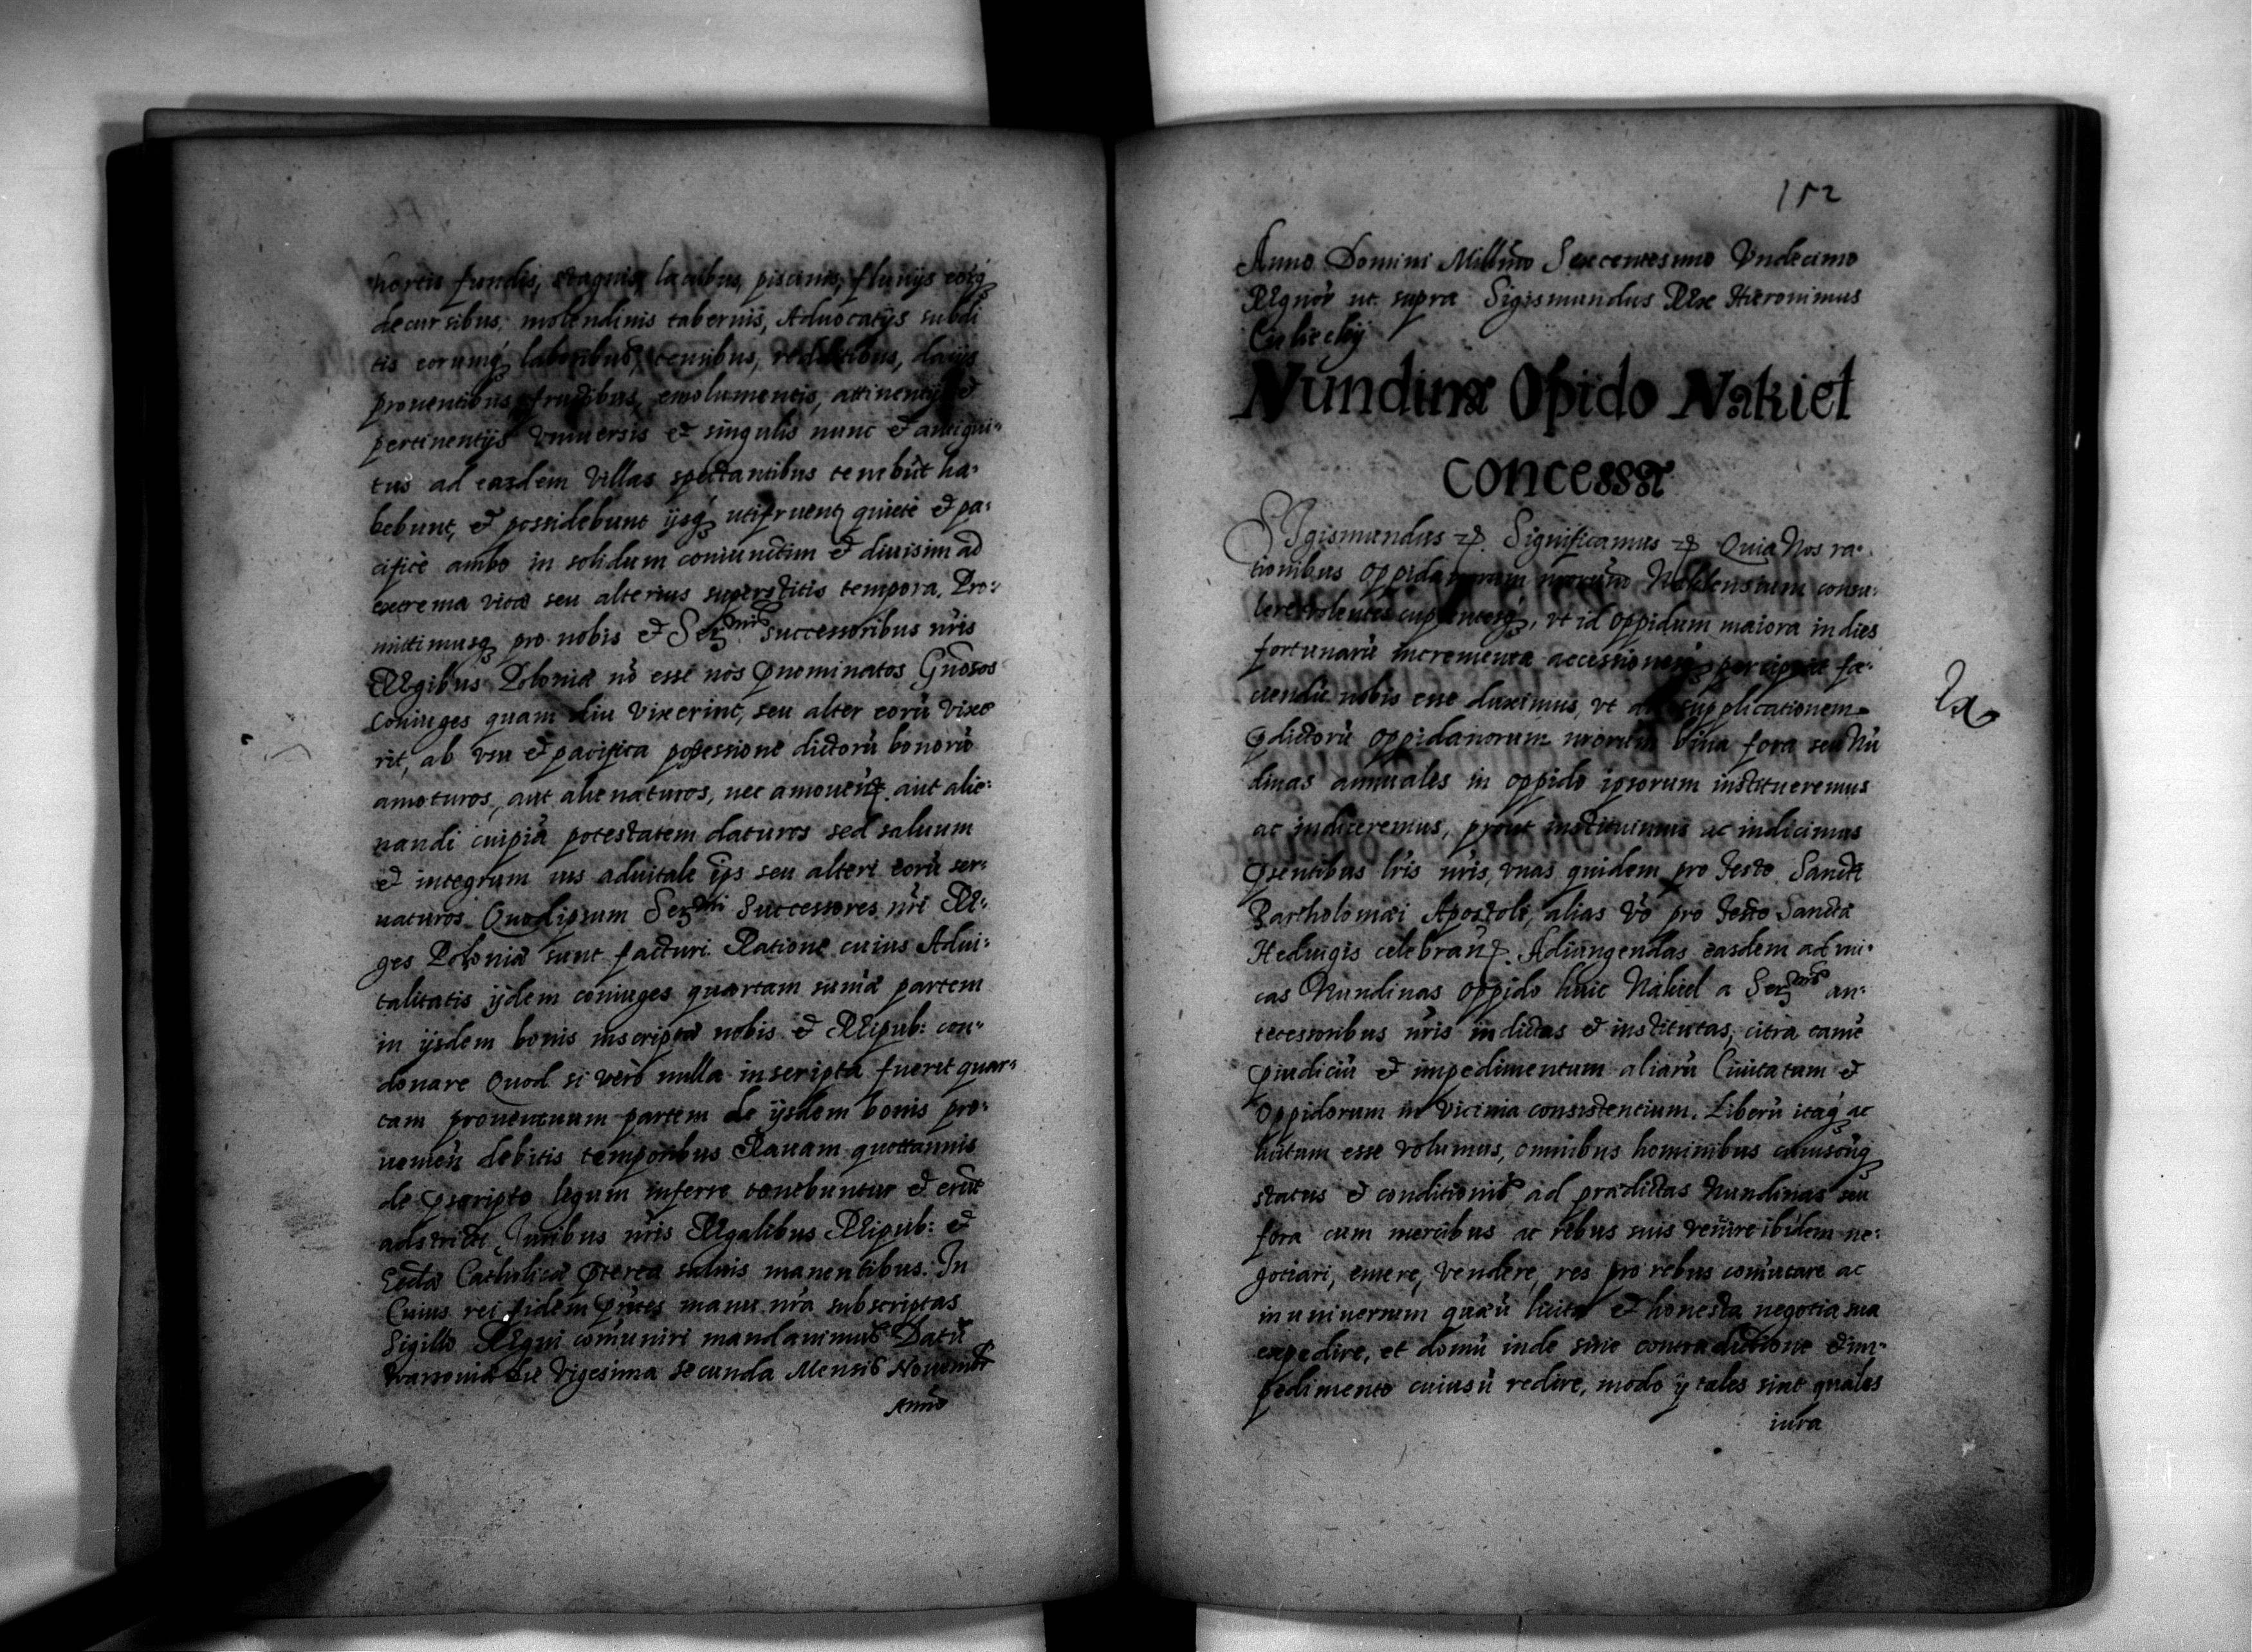 hortis fundis, stagnis, lacibus, piscinis, fluuijs eorq₃
decursibus, molendinis tabernis, Aduocatijs subdi
tis eorumq₃ laboribus, censibus, redditibus, dacijs
prouentibus, fructibus, emolumentis, attinentijs et
pertinentijs vniuersis et singulis nunc et antiqui-
tus ad easdem villas spectantibus tenebūt ha-
bebunt, et possidebunt ijsq₃ utifruent quietè et pa-
cificè ambo in solidum coniunctim et diuisim ad
extrema vitæ seu alterius superstitis tempora. Pro-
mittimusq₃ pro nobis et Ser^mis successoribus nr̃is
Regibus Poloniæ nō esse nos p̃nominatos Gn̄osos
Coniuges quam diu vixerint, seu alter eorū vixe
rit, ab vsu et pacifica possessione dictorū bonorū
amoturos, aut alienaturos, nec amouen̄. aut alie-
nandi cuipiā potestatem daturos sed saluum
et integrum ius aduitale ip̄s seu alteri eorū ser-
uaturos. Quod ipsum Ser^mi Successores nr̃i Re-
ges Poloniæ sunt facturi. Ratione cuius Adui-
talitatis ijdem coniuges quartam sum̄æ partem
in ijsdem bonis inscriptæ nobis et Reipub: con-
donare Quod si verò nulla inscripta fuerit quar-
tam prouentuum partem de ijsdem bonis pro-
uenien̄ debitis temporibus Rauam quottannis
de p̃scripto legum inferre tenebuntur et erūt
adstricti, Juribus nr̃is Regalibus Reipub: et
Eccl̄æ Catholicæ p̃terea saluis manentibus. In
Cuius rei fidem p̃ntes manu nr̃a subscriptas
Sigillo Regni com̄uniri mandauimus Datū
Warsouiæ die vigesima secunda Mensis Nouembr
Anno
152
Anno Domini Mill̄mo Sexcentesimo Vndecimo
Regnor̄ ut supra Sigismundus Rex Hieronimus
Cielieckij
Nundinæ Opido Nakiel
concessæ
SIgismundus etc. Significamus etc. Quia Nos ra-
tionibus oppidanorum nr̃orum Naklensium consu-
lere volentes cupientesq₃, vt id oppidum maiora in dies
fortunarū incrementa accessionesq₃ percipiat fa-
ciendū nobis esse duximus, vt ad supplicationem
p̃dictorū oppidanorum nr̃orum bina fora seu Nū
dinas annuales in oppido ipsorum institueremus
ac indiceremus, prout instituimus ac indicimus
p̃sentibus lr̃is nr̃is, vnas quidem pro Festo Sancti
Bartholomæi Apostoli, alias vō pro Festo Sanctæ
Heduigis celebran̄. Adiungendas easdem ad vni-
cas Nundinas oppido huic Nakiel a Ser^mis an-
tecessoribus nr̃is indictas et institutas, citra tamē
p̃iudiciū et impedimentum aliarū Ciuitatum et
oppidorum in vicinia consistentium. Liberū itaq₃ ac
licitum esse volumus, omnibus hominibus cuiuscūq₃
status et conditionis ad prædictas Nundinas seu
fora cum mercibus ac rebus suis venire ibidem ne-
gotiari, emere, vendere, res pro rebus com̄utare ac
in uniuersum quæū licita et honesta negotia sua
expedire, et domū inde sine contradictione et im-
pedimento cuiusū redire, modo ij tales sint quales
iura